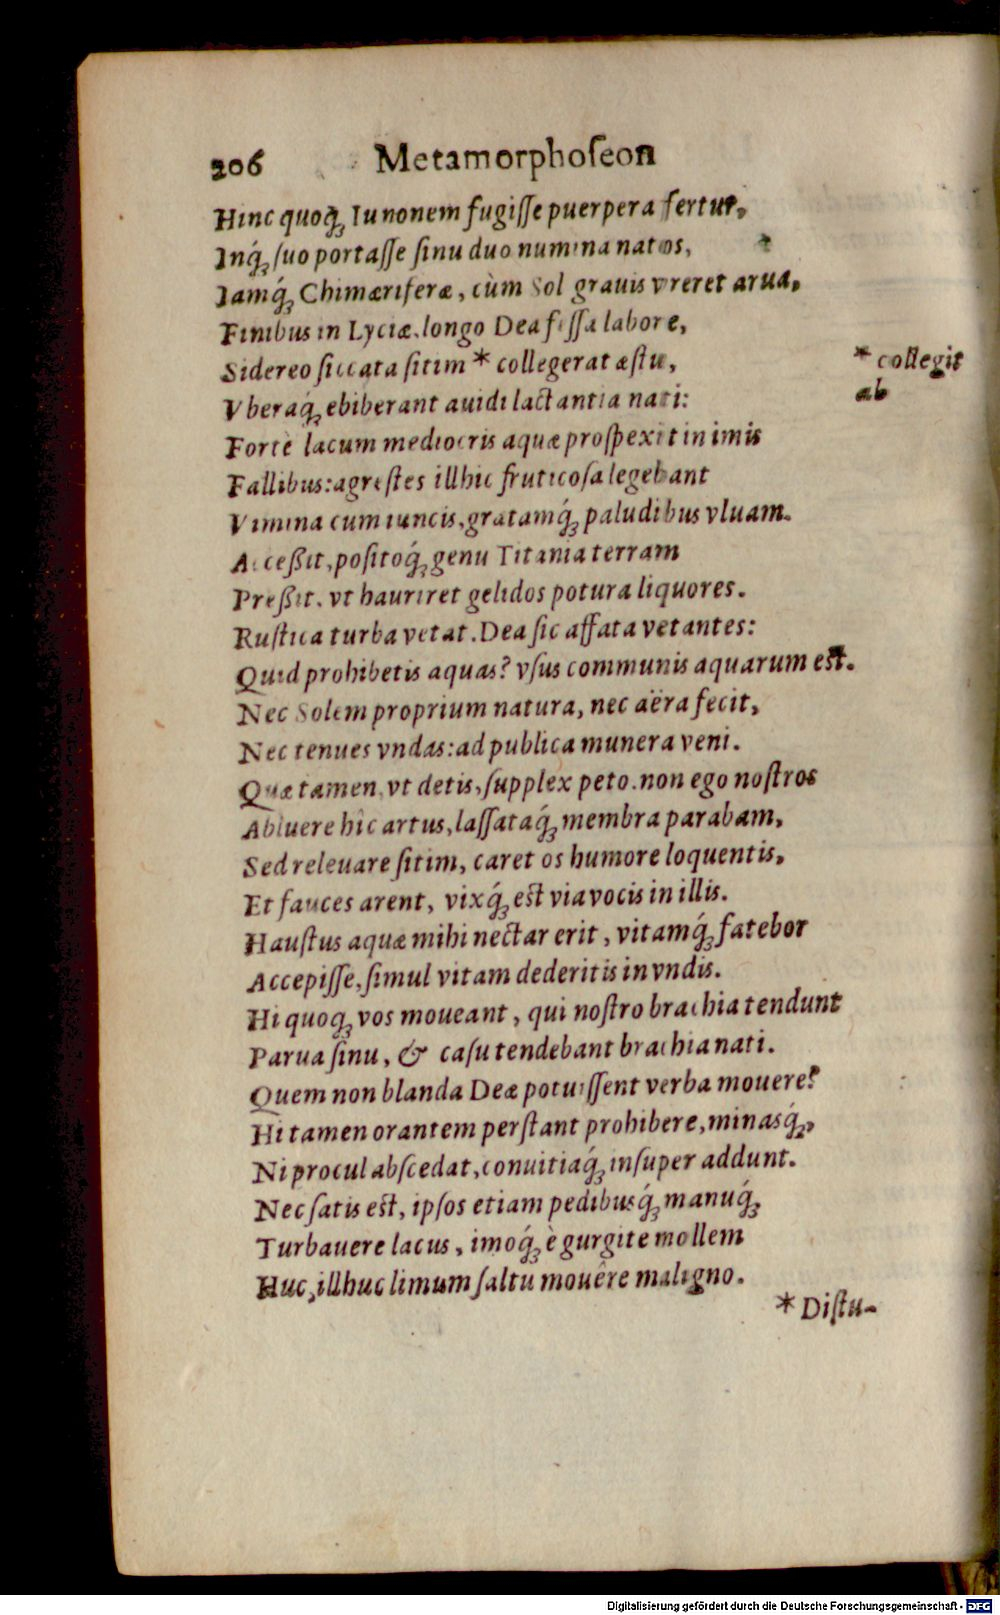 206 Metamorphoſeon
Hinc quoq́ꝫ Iunonem fugiſſe puerpera fertur,
Inq́ꝫ ſuo portaſſe ſinu duo numina natos,
Iamq́ꝫ Chimæriferæ, cùm Sol grauis vreret arua,
Finibus in Lyciæ, longo Dea feſſa labore,
Sidereo ſiccata ſitim * collegerat æſtu,
* collegit
ab
Vberaq́ꝫ ebiberant auidi lactantia nati:
Fortè lacum mediocris aquæ proſpexit in imis
Fallibus: agreſtes illhic fruticoſa legebant
Vimina cum iuncis, gratamq́ꝫ paludibus vluam.
Acceßit, poſitoq́ꝫ genu Titania terram
Preßit, vt hauriret gelidos potura liquores.
Ruſtica turba vetat. Dea ſic affata vetantes:
Quid prohibetis aquas? vſus communis aquarum eſt.
Nec Solem proprium natura, nec aëra fecit,
Nec tenues vndas: ad publica munera veni.
Quæ tamen, vt detis, ſupplex peto. non ego noſtros
Abluere hîc artus, laſſataq́ꝫ membra parabam,
Sed releuare ſitim, caret os humore loquentis,
Et fauces arent, vixq́ꝫ eſt via vocis in illis.
Hauſtus aquæ mihi nectar erit, vitamq́ꝫ fatebor
Accepiſſe, ſimul vitam dederitis in vndis.
Hi quoqꝫ vos moueant, qui noſtro brachia tendunt
Parua ſinu, & caſu tendebant brachia nati.
Quem non blanda Deæ potuiſſent verba mouere?
Hi tamen orantem perſtant prohibere, minasq́ꝫ,
Ni procul abſcedat, conuitiaq́ꝫ inſuper addunt.
Nec ſatis eſt, ipſos etiam pedibusq́ꝫ manuq́ꝫ
Turbauere lacus, imoq́ꝫ è gurgite mollem
Huc, illhuc limum ſaltu mouêre maligno.
* Diſtu-
Digitalisierung gefördert durch die Deutsche Forschungsgemeinschaft - DFG